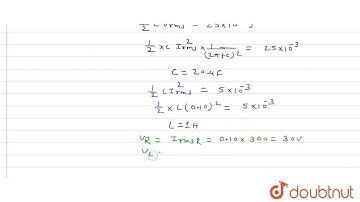 ½ C Vrms² = 25×10⁻³
½ × C Irms² × 1/(2πfC)² = 25×10⁻³
C = 20 μF
½ L Irms² = 5×10⁻³
½ × L (0.10)² = 5×10⁻³
L = 1H
VR = Irms R = 0.10 × 300 = 30V
VL
doubtnut